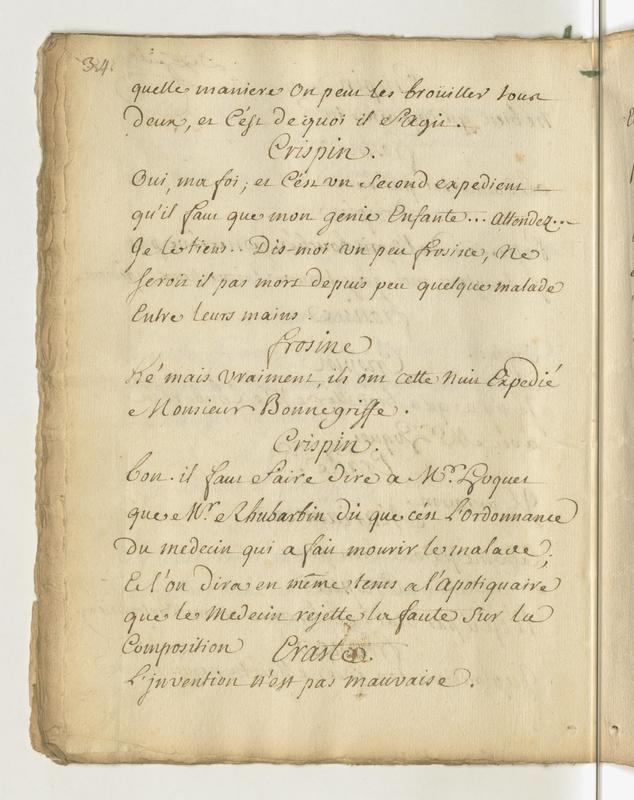 34.
quelle maniere on peut les broüiller tous
deux, et C'est de quoi il S'agit.
Crispin.
Oui, ma foi; et C'est un Second expedient
qu'il faut que mon genie Enfante... attendez...
Je le tiens.. Dis-moi un peu frosine, Ne
Seroit il pas mort depuis peu quelque malade
Entre leurs mains.
frosine
hé mais vraiment, ils ont cette nuit Expedié
Monsieur Bonnegriffe.
Crispin.
bon. il faut faire dire a Mr.
que Mr Rhubarbin dit que c'est L'Ordonnance
Du medecin qui a fait mourir le malade;
Et l'on dira en même tems a l'apotiquaire
que le Medecin rejette la faute Sur la
Composition
Eraste.
L'jnvention n'est pas mauvaise.